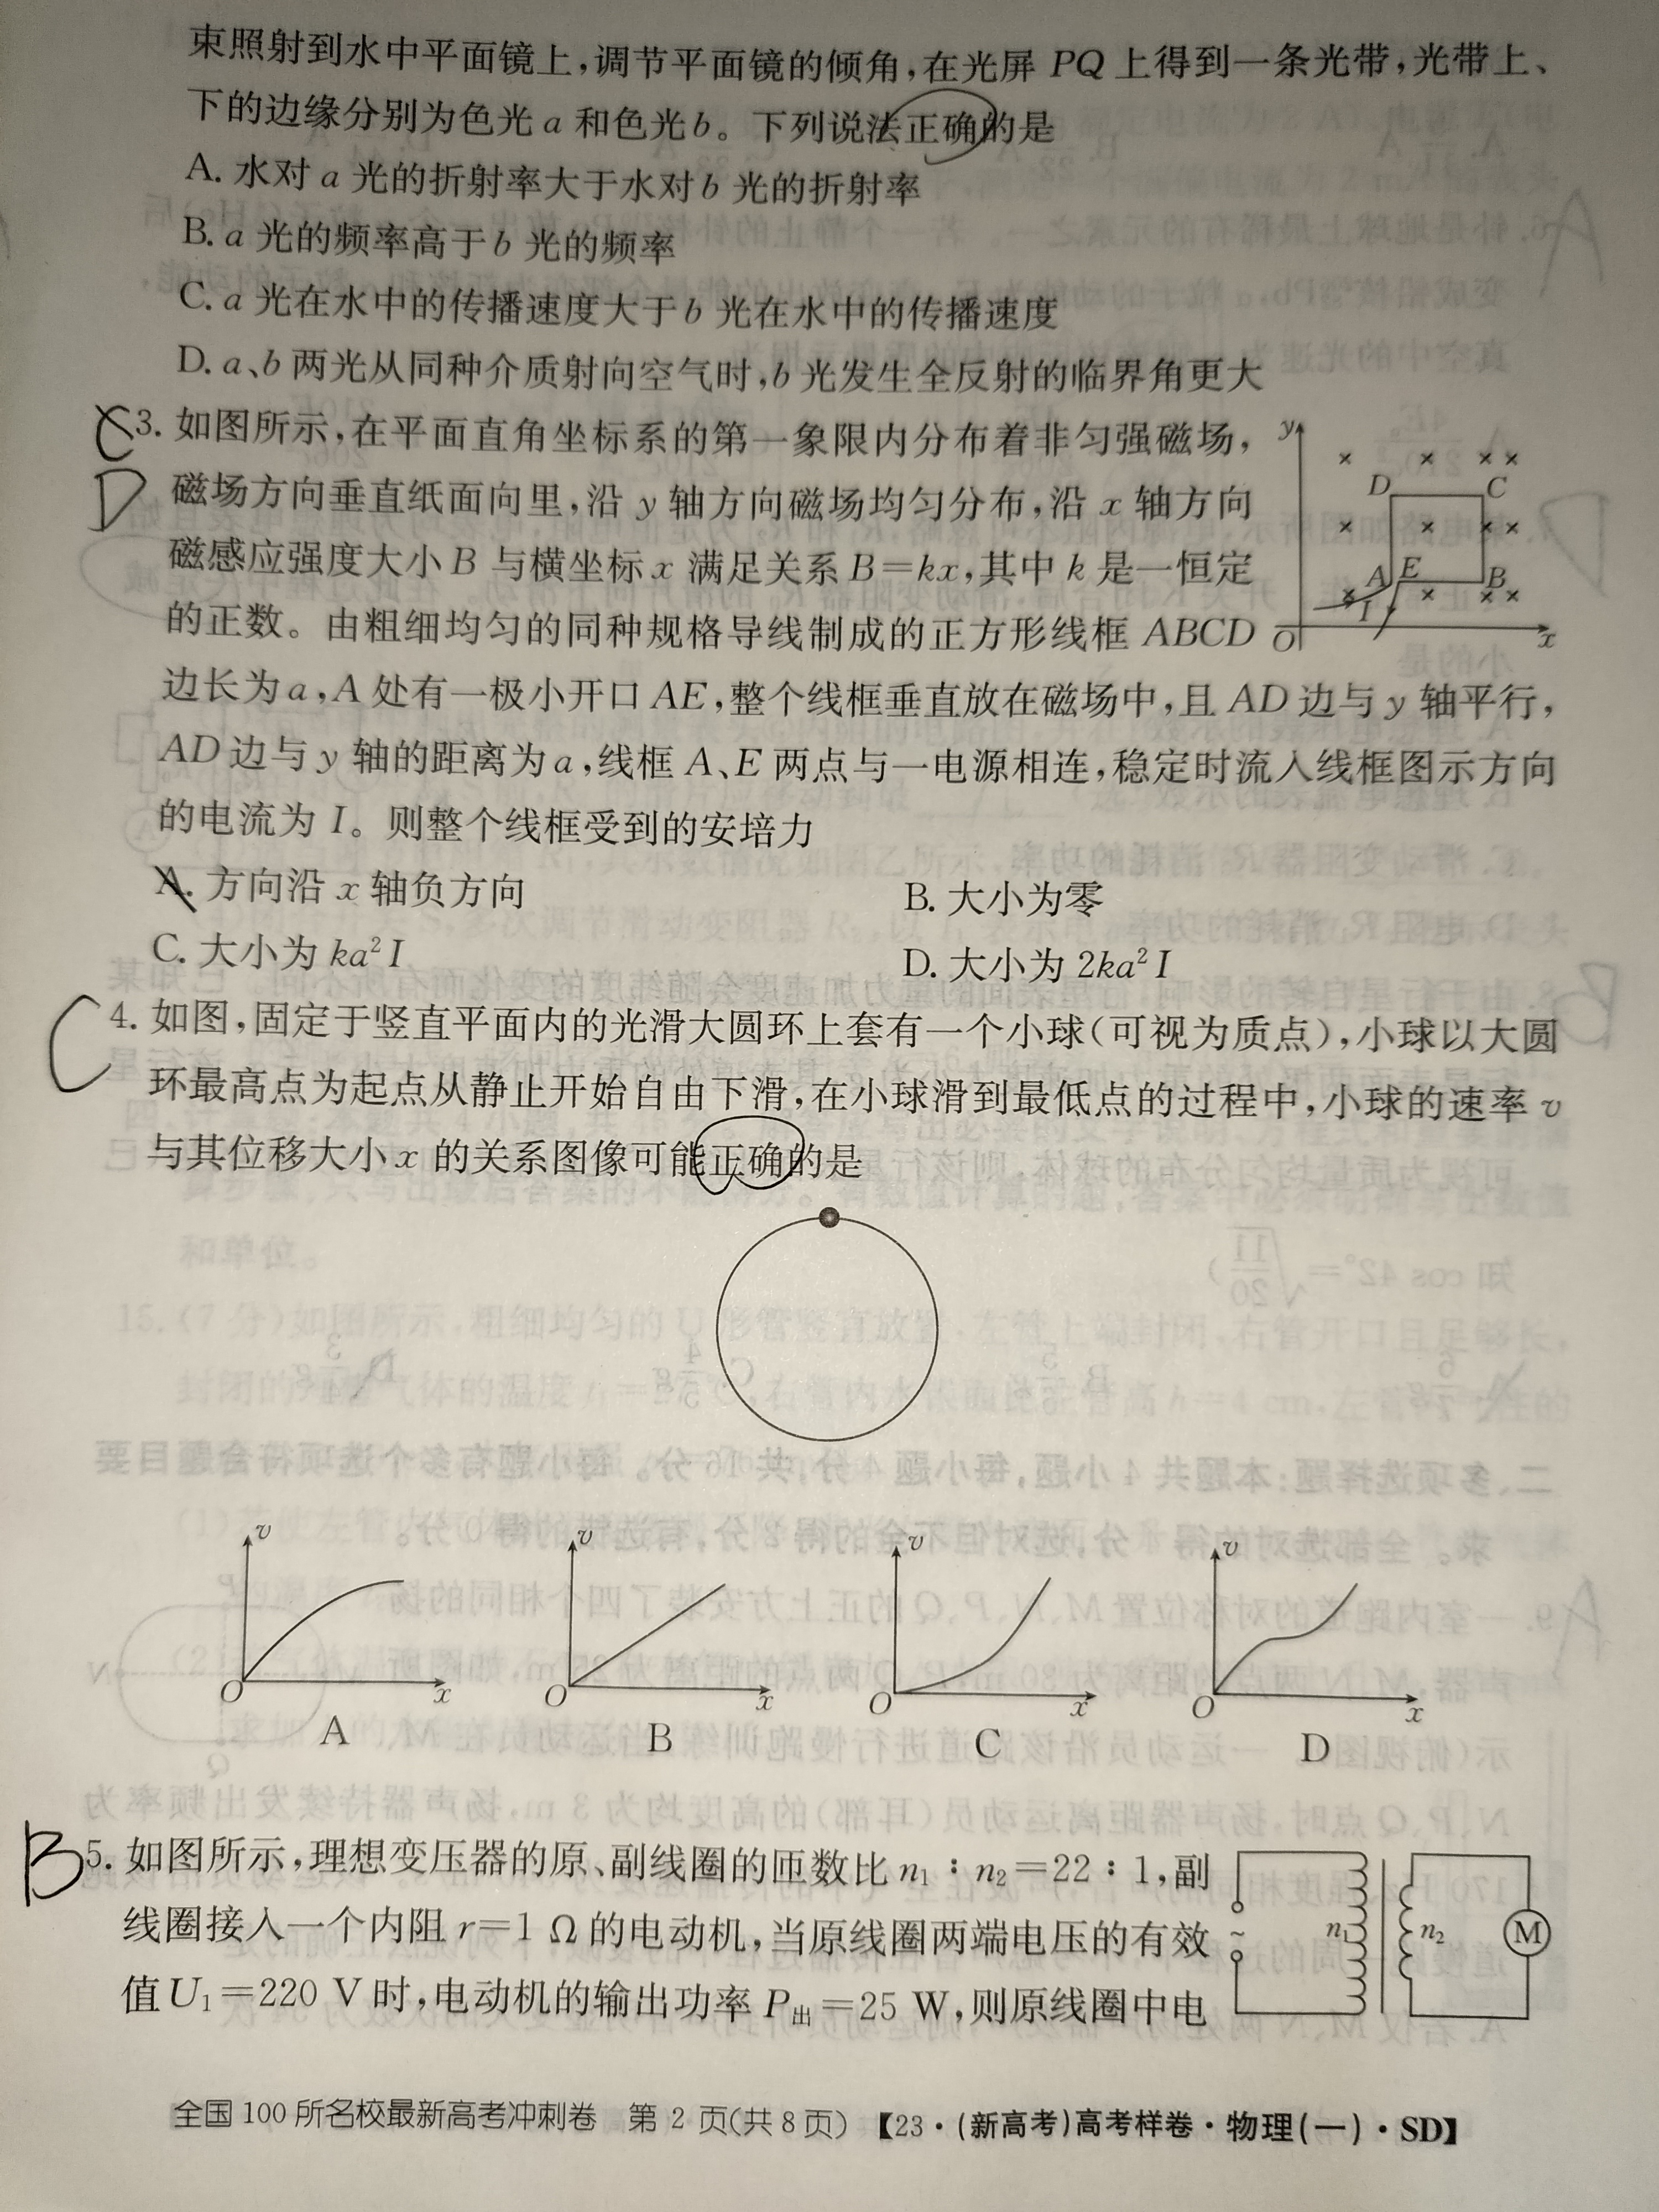 束照射到水中平面镜上,调节平面镜的倾角,在光屏 PQ 上得到一条光带,光带上、
下的边缘分别为色光 a 和色光 b。下列说法正确的是
A. 水对 a 光的折射率大于水对 b 光的折射率
B. a 光的频率高于 b 光的频率
C. a 光在水中的传播速度大于 b 光在水中的传播速度
D. a、b 两光从同种介质射向空气时,b 光发生全反射的临界角更大
C
D
3. 如图所示,在平面直角坐标系的第一象限内分布着非匀强磁场,
磁场方向垂直纸面向里,沿 y 轴方向磁场均匀分布,沿 x 轴方向
磁感应强度大小 B 与横坐标 x 满足关系 B=kx,其中 k 是一恒定
的正数。由粗细均匀的同种规格导线制成的正方形线框 ABCD
边长为 a,A 处有一极小开口 AE,整个线框垂直放在磁场中,且 AD 边与 y 轴平行,
AD 边与 y 轴的距离为 a,线框 A、E 两点与一电源相连,稳定时流入线框图示方向
的电流为 I。则整个线框受到的安培力
y
D C
A E B
I
O x
A. 方向沿 x 轴负方向 B. 大小为零
C. 大小为 ka²I D. 大小为 2ka²I
C
4. 如图,固定于竖直平面内的光滑大圆环上套有一个小球(可视为质点),小球以大圆
环最高点为起点从静止开始自由下滑,在小球滑到最低点的过程中,小球的速率 v
与其位移大小 x 的关系图像可能正确的是
v v v v
O x O x O x O x
A B C D
B
5. 如图所示,理想变压器的原、副线圈的匝数比 n₁∶n₂=22∶1,副
线圈接入一个内阻 r=1 Ω 的电动机,当原线圈两端电压的有效
值 U₁=220 V 时,电动机的输出功率 P出=25 W,则原线圈中电
~ n₁ n₂ M
全国 100 所名校最新高考冲刺卷 第 2 页(共 8 页) 【23·(新高考)高考样卷·物理(一)·SD】